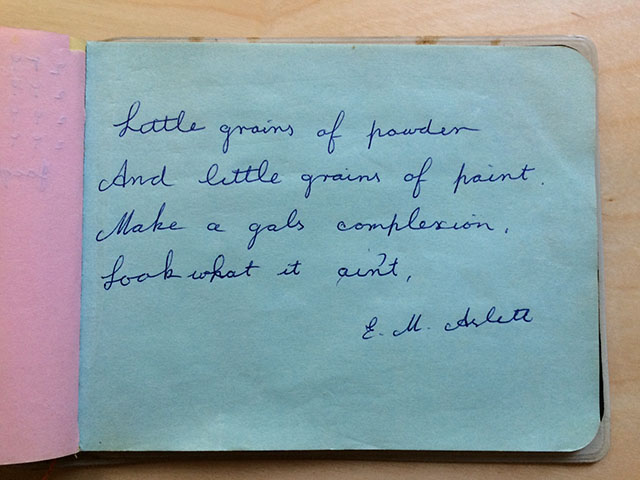 Little grains of powder
And little grains of paint.
Make a gals complexion,
Look what it ain't,
E. M. Aslett